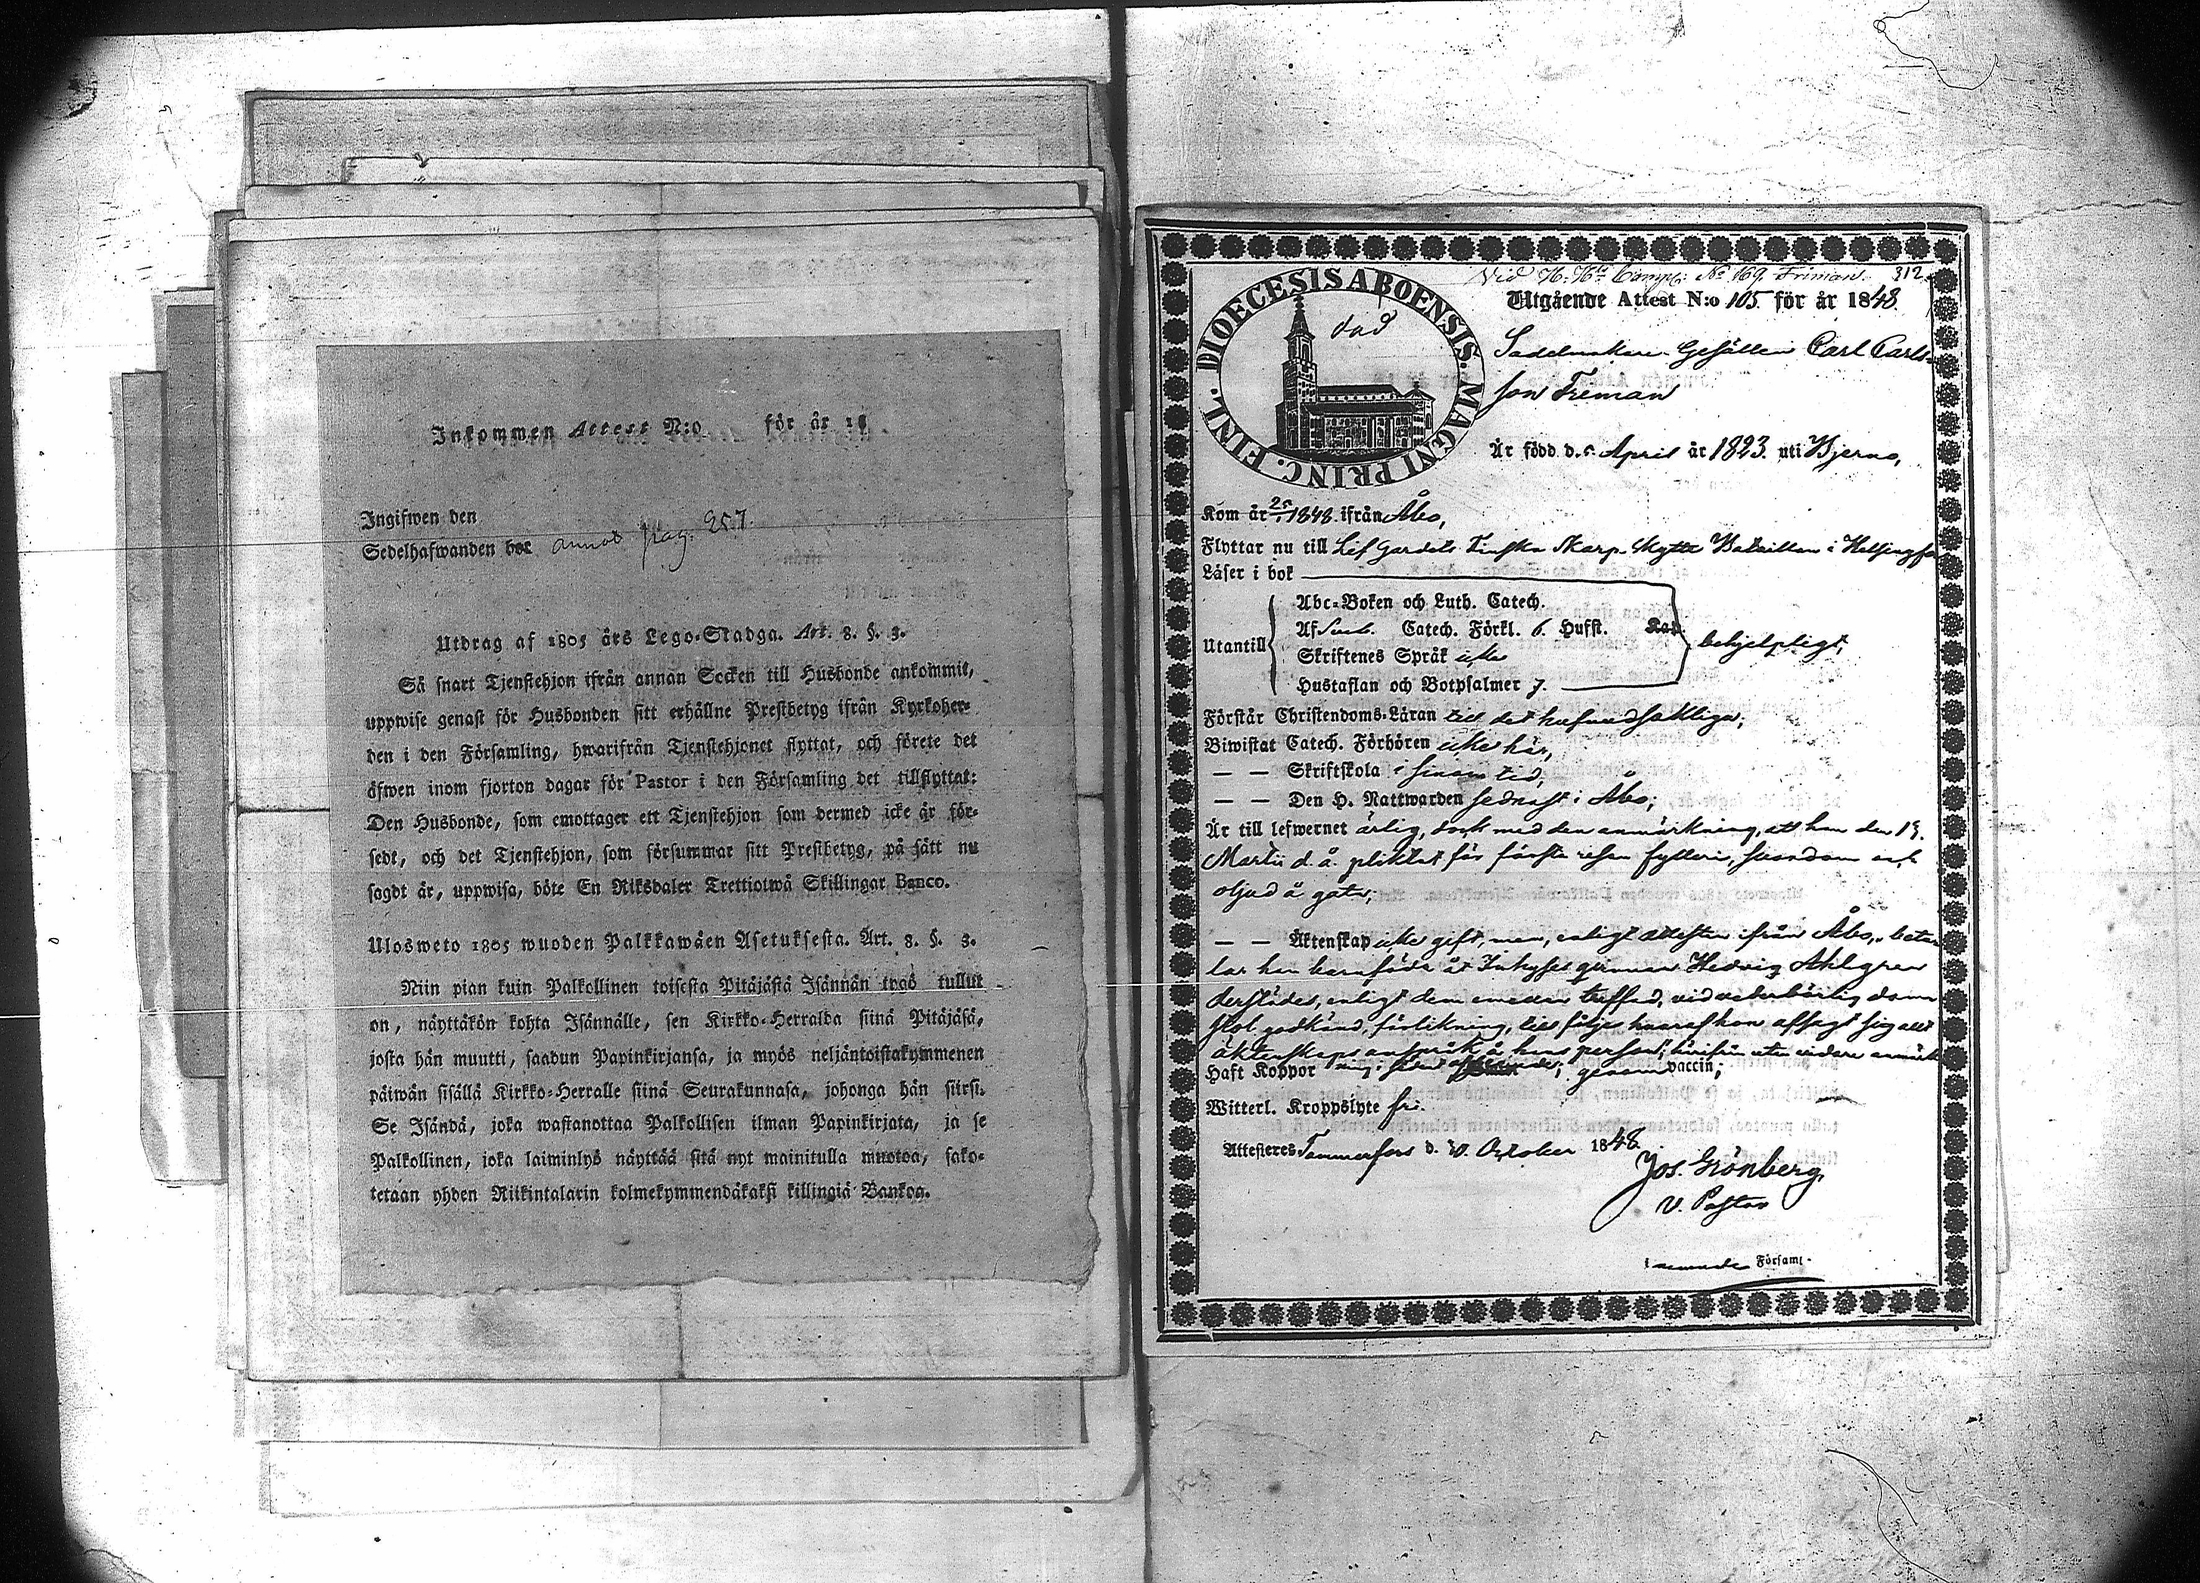 Inkommen Attest N:o för år 18
Ingifwen den
Sedelhafwanden bor annot pag. 257.
Utdrag af 1805 års Lego-Stadga. Art. 8. §. 3.
Så snart Tjenstehjon ifrån annan Socken till Husbonde ankommit,
uppwise genast för Husbonden sitt erhållne Prestbetyg ifrån Kyrkoher-
den i den Församling, hwarifrån Tjenstehjonet flyttat, och förete det
äfwen inom fjorton dagar för Pastor i den Församling det tillflyttat:
Den Husbonde, som emottager ett Tjenstehjon som dermed icke är för-
sedt, och det Tjenstehjon, som försummar sitt Prestbetyg, på sätt nu
sagdt är, uppwisa, böte En Riksdaler Trettiotwå Skillingar Banco.
Ulosweto 1805 wuoden Palkkawäen Asetuksesta. Art. 8. §. 3.
Niin pian kuin Palkollinen toisesta Pitäjästä Isännän tygö tullut
on, näyttäkön kohta Isännälle, sen Kirkko-Herralda siinä Pitäjäsä,
josta hän muutti, saadun Papinkirjansa, ja myös neljäntoistakymmenen
päiwän sisällä Kirkko-Herralle siinä Seurakunnasa, johonga hän siirsi.
Se Isändä, joka wastanottaa Palkollisen ilman Papinkirjata, ja se
Palkollinen, joka laiminlyö näyttää sitä nyt mainitulla muotoa, sako-
tetaan yhden Riikintalarin kolmekymmendäkaksi killingiä Bankoa.
Vid H. Hrs Comp: No 169. Friman. 312.
DIOECESIS ABOENSIS. MAGNI PRINC. FINL.
död
Utgående Attest N:o 105. för år 1848.
Sadelmakare-Gesällen Carl Carls-
son Freman
Är född d. April år 1823. uti Bjerno,
Kom år 1848. ifrån Åbo,
Flyttar nu till Lif Gardets Finska Skarp-Skytte Bataillon i Helsingfors
Läser i bok
Abc-Boken och Luth. Catech.
Af Catech. Förkl. 6. Husst. Kap.
Utantill
behjelpligt,
Skriftenes Språk icke
Hustaflan och Botpsalmer 7.
Förstår Christendoms-Läran till det hufvudsakliga;
Biwistat Catech. Förhören icke här,
— — Skriftskola i sinom tid,
— — Den H. Nattwarden sednast i Åbo;
Är till lefwernet ärlig, dock med den anmärkning, att han den 19.
Martii d. å. pliktat för första resan fylleri, svordom och
oljud å gata;
— — Äktenskap icke gift, men, enligt attesten ifrån Åbo, beta-
lar han barnföda åt Inhyses qvinnan Hedvig Ahlgren
derstädes, enligt dem emellan träffad, vid vederbörlig dom-
stol godkänd, förlikning, till följe hvaraf hon afsagt sig allt
äktenskaps anspråk å hans person; härifrån utan vidare anmärk-
Haft Koppor genom vaccin;
Witterl. Kroppslyte fri.
Attesteres Tammerfors d. 10. October 1848.
Jos. Grönberg,
V. Pastor
i Församl.